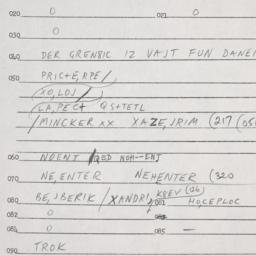 020 0 021 0
030 0
040 DER GRENEIC IZ VAJT FUN DANEN
050 PRIC+E,RPE/
(XO,LOJ/
(LA,PEC+ QS+TETL
/MINCKER xx XAZE,JRIM (217 (051
060 NOENT
070 NE,ENTER NEHENTER (320
080 BE,JBERIK /XANDRI, KREV (26)
081 HOCEPLOC
082 0
084 0 085 —
090 TROK